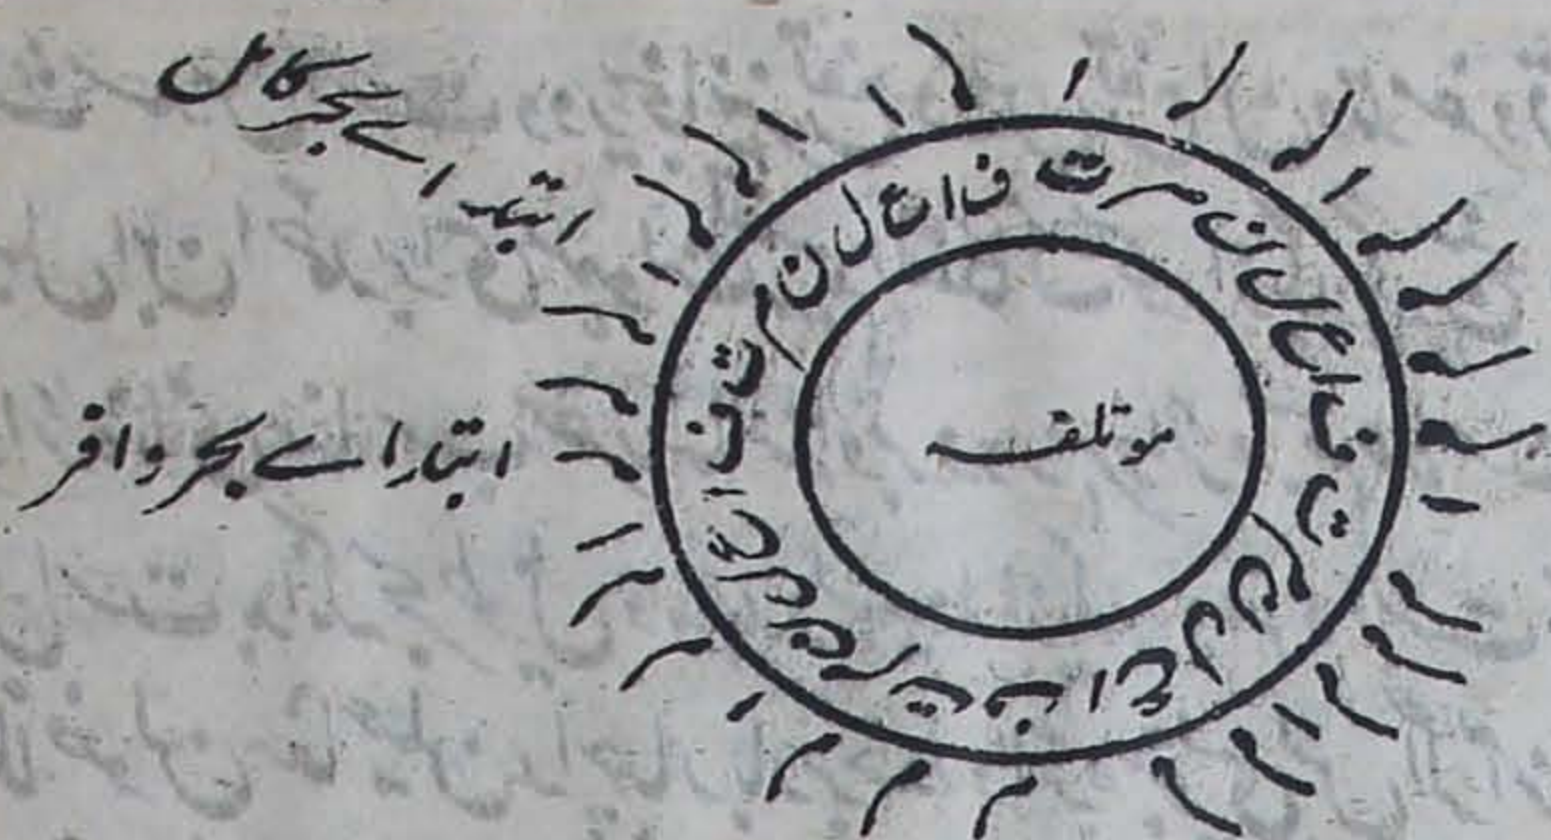 ابتداے بحر کامل
ابتداے بحر وافر
موتلفہ
م ت ف ا ع ل ن م ت ف ا ع ل ن م ت ف ا ع ل ن م ت ف ا ع ل ن